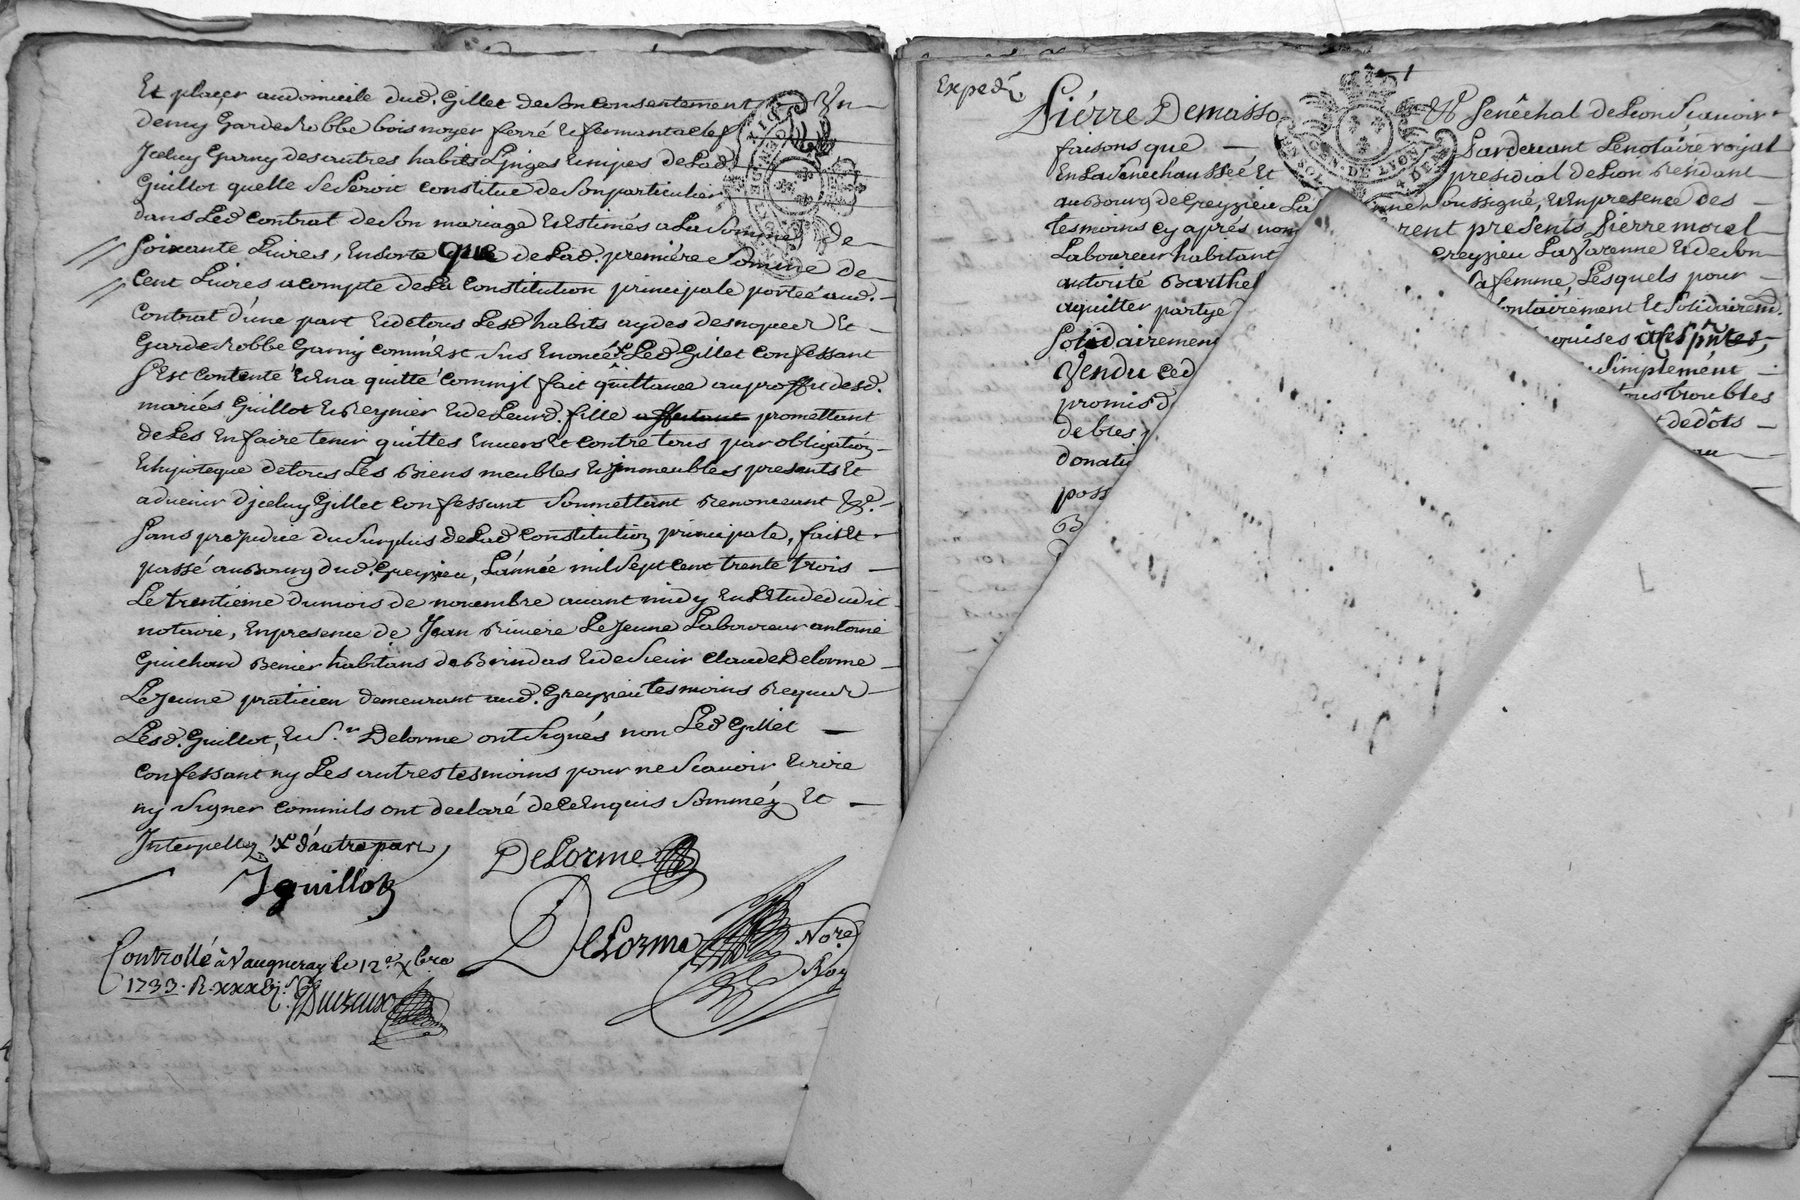 Et placer audomicile dud. Gillet deson consentement Un
demy Garderobbe bois noyer ferré et fermantaclef
Jceluy Garny desautres habits Linges et nipes de Lad
Guillot quelle Se Seroit constitue deSonparticulier
dans Led contrat deSon mariage et Estimés a La Somme de
Soixante Livres, Ensorte que de Lad. premiére Somme de
Cent Livres acompte de La Constitution principale portée aud.
Contrat d'une part et de tous Lesd habits aydes desnopces Et
Garderobbe Garny comm'Est sus Enoncé x Led Gillet Confessant
S'est contenté et Ena quitté comm'jl fait quittance auproffit desd.
mariés Guillot et Reynier et de Leurd. fille affectant promettant
deLes En faire tenir quittes Envers Et contre tous par obligation
Ethipoteque detous Les Biens meubles et jmmeubles presents Et
advenir d'jceluy Gillet Confessant Soumettant Renonceant &c.
Sans prejudice du Surplus de Lad Constitution principale, fait Et
passé auBourg dud. Greyzieu, L'année mil Sept cent trente trois
Le trentieme dumois de novembre avant midy En L'Etude dudit
notaire, Enpresence de Jean Riviere Le Jeune Laboureur antoine
Guichard Benier habitans de Brindas et de Sieur Claude Delorme
Le Jeune praticien demeurant aud. Greyzieu tesmoins Requis
Lesd. Guillot, et S.r Delorme ont Signés non Led Gillet
Confessant ny Les autres tesmoins pour ne Scavoir Ecrire
ny Signer comm'ils ont declaré de ce Enquis Sommés Et
Interpellez x d'autre part
DeLorme
J guillot
DeLorme No.re Roy
Controllé à Vaugneray le 12e Xbre
1733. R. xxx
Exped.
Piérre Demasso
Senéchal de Lion Scavoir
faisons que
Pardevant Le notaire royal
En La Sénéchaussée Et
presidial de Lion Résidant
GENE DE LYON
auBourg de Greyzieu La
Soussigné, et En presence des
tesmoins cy aprés nom
rent présents Pierre morel
Laboureur habitant
Greyzieu La Varenne et de Son
autorité Barthel
sa femme, Lesquels pour
aquitter partye
ontairement Et Solidairem.
Solidairement
Vendu ced
Simplement
promis d
ous troubles
de bles
t de dôts
donati
poss